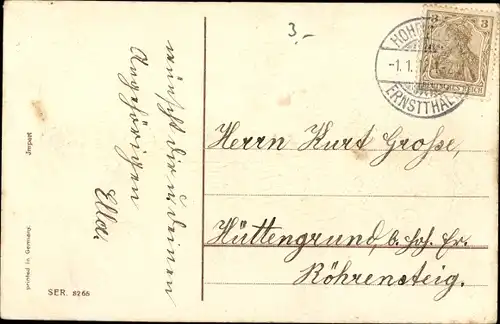 3.-
HOHE
-1.1.
ERNSTTHAL
3 3
DEUTSCHES REICH
wünscht dir u. deinen
Angehörigen
Ella.
Herrn Kurt Große,
Hüttengrund, b. Hoh. Er.
Röhrensteig.
Import
printed in Germany.
SER. 8266